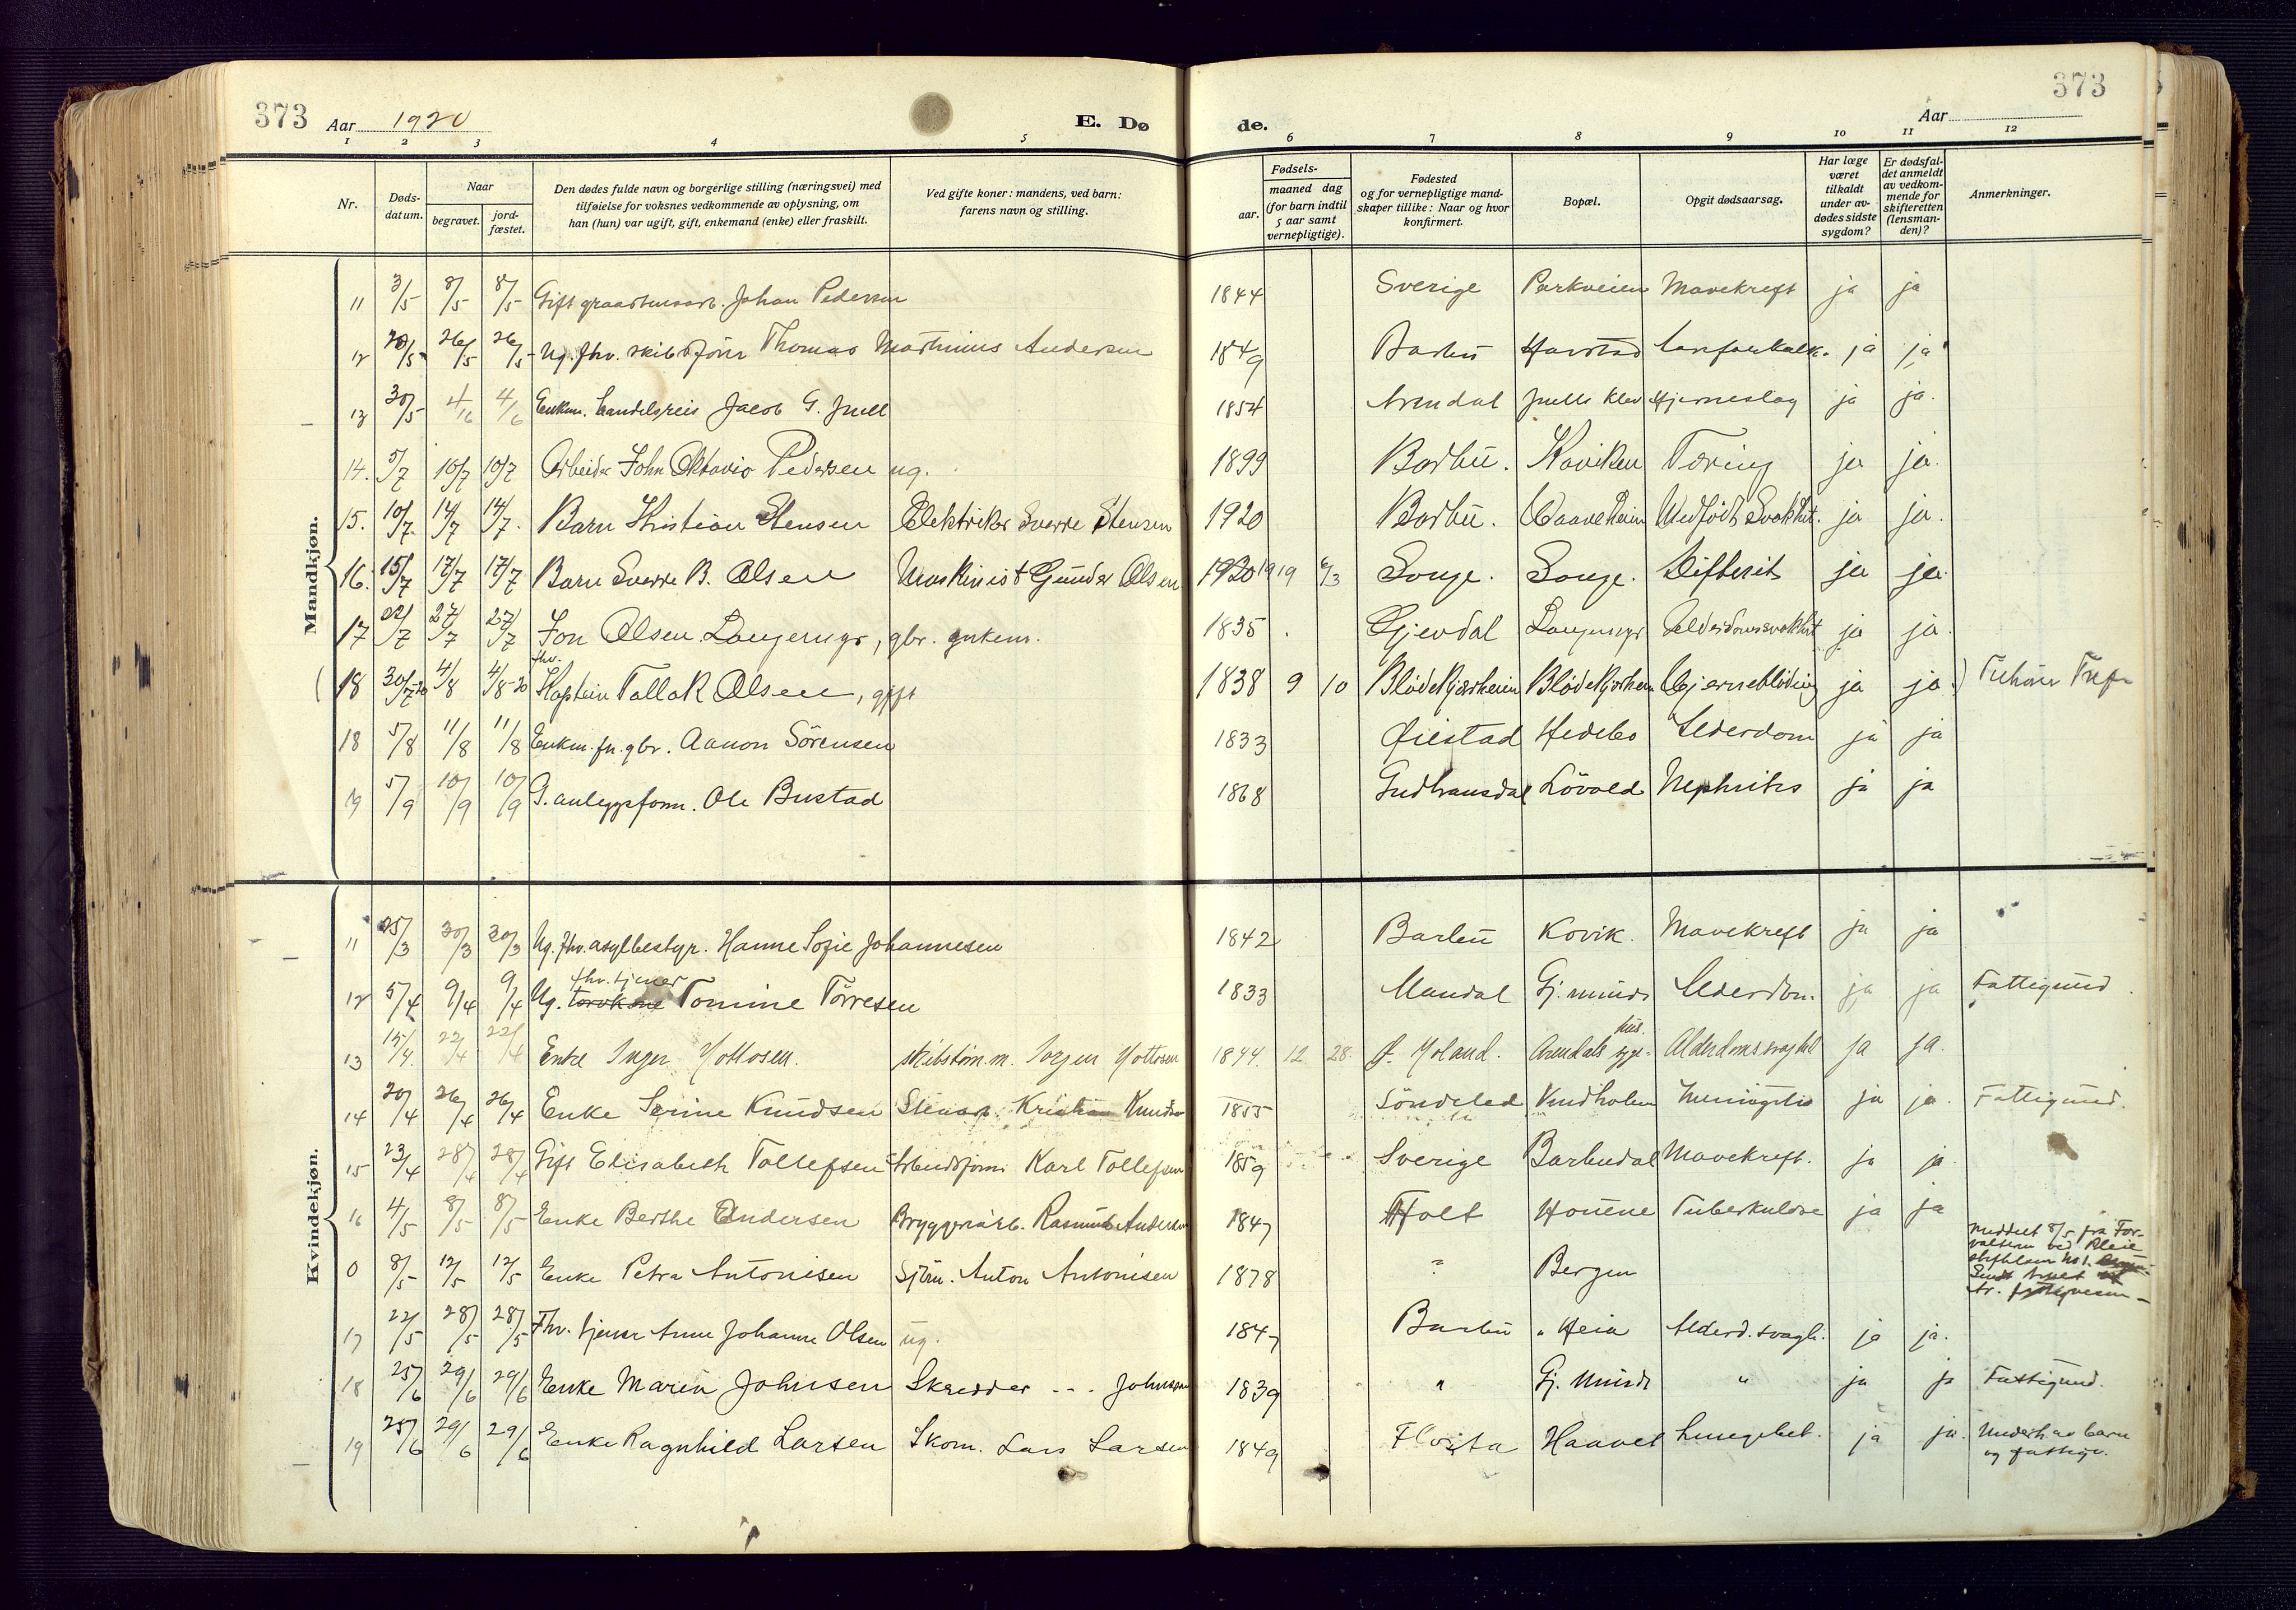 373 Aar 1920 E. Dø de. Aar 373
1 2 3 4 5 6 7 8 9 10 11 12
Nr.
Døds-datum.
Naar
begravet.
jord-fæstet.
Den dødes fulde navn og borgerlige stilling (næringsvei) med
tilføielse for voksnes vedkommende av oplysning, om
han (hun) var ugift, gift, enkemand (enke) eller fraskilt.
Ved gifte koner: mandens, ved barn:
farens navn og stilling.
Fødsels-
aar.
maaned dag
(for barn indtil
5 aar samt
vernepligtige).
Fødested
og for vernepligtige mand-
skaper tillike: Naar og hvor
konfirmert.
Bopæl.
Opgit dødsaarsag.
Har læge
været
tilkaldt
under av-
dødes sidste
sygdom?
Er dødsfal-
det anmeldt
av vedkom-
mende for
skifteretten
(lensman-
den)?
Anmerkninger.
Mandkjøn.
11 3/5 8/5 8/5 Gift graastensarb. Johan Pedersen 1844 Sverige Parkveien Mavekreft ja ja
12 20/5 26/5 26/5 Ug. fhv. skibsförer Thomas Mathinius Andersen 1849 Barbu Harstad Aareforkalk. ja ja
13 30/5 4/6 4/6 Enkm. handelsreis Jacob G. Juell 1854 Arendal Juells Klev Hjerneslag ja ja.
14. 5/7 10/7 10/7 Arbeider John Oktavio Pedersen ug. 1899 Barbu. Kaviken Tæring ja ja.
15. 10/7 14/7 14/7. Barn Kristian Stensen Elektriker Sverre Stensen 1920 Barbu. Medfödt Svakhet. ja ja.
16. 15/7 17/7 17/7 Barn Sverre B. Olsen Maskinist Gunder Olsen 1920 1919 6/3 Songe. Songe. Difterit ja ja.
17 22/7 27/7 27/7 Jon Olsen Langemyr, gbr. enkem. 1835 Gjevdal Langemyr Alderdomssvakhet ja ja.
fhv.
(18 30/7-20 4/8 4/8-20 Kaptein Tallak Olsen, gift 1838 9 10 Blödekjærheien Blödekjærheien Hjerneblödning ja ja.) Tilhörer Tref.
18 5/8 11/8 11/8 Enkm. fh. gbr. Aanon Sörensen 1833 Øiestad Hedebo Alderdom ja ja
19 5/9 10/9 10/9 G. anleggsform. Ole Bustad 1868 Gudbransdal Lövold Nephritis ja ja
Kvindekjøn.
11 25/3 30/3 30/3 Ug. fhv. asylbestyr. Hanne Sofie Johannesen 1842 Barbu Kovik. Mavekreft ja ja
fhv. tjener
12 5/4 9/4 9/4 Ug. torvkone Tomine Törresen 1833 Mandal Gj. minde Alderdom. ja ja Fattigund.
13 15/4. 22/4 22/4 Enke Inger Mottosen. skibstöm.m. Jörgen Mottosen 1844. 12 28. Ø. Moland. Arendals syge-hus. Alderdomssvaghed ja ja.
14 20/4 26/4 26/4 Enke Serine Knudsen Stenarb. Kristian Knudsen 1855 Söndeled Vindholm Meningitis ja ja. Fattigund.
15 23/4 28/4 28/4 Gift Elisabeth Tollefsen Arbeidsform. Karl Tollefsen 1859 Sverige Barbudal Mavekreft. ja ja.
16 4/5 8/5 8/5 Enke Berthe Andersen Bryggeriarb. Rasmus Andersen 1847 Holt Houene Tuberkulose ja ja
0 8/5 12/5 12/5 Enke Petra Antonisen Sjöm. Anton Antonisen 1878 " Bergen Meddelt 8/5 fra For-
valteren ved Pleie
stiftelsen No 1.
17 22/5 28/5 28/5 Fhv. tjener Anne Johanne Olsen ug. 1847 Barbu " Heia Alderd. svagh. ja ja.
18 25/6 29/6 29/6 Enke Maren Johnsen Skredder --. Johnsen 1839 " Gj. Minde " ja ja Fattigund.
19 25/6 29/6 29/6 Enke Ragnhild Larsen Skom. Lars Larsen 1849 Flosta Haavet Lungebet. ja ja. Underh. av barn
og fattigv.